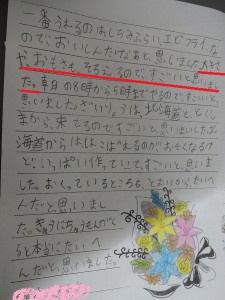 一番うれるのはしろみざかなとエビフライな
ので、おいしんだなあと、思いました。大きさ
や、おもさも、そろえるので、すごいと思いまし
た。毎日の8時から5時までやるのですごいと、
思いました。ざいりょうは、北海道と、とくし
まから、来てるのですごいと思いました。北
海道からはこばれるのが、おそくなるけ
ど、いっぱい作っていて、すごいと、思いま
した。おくっているところも、とおいから、たいへ
んだと、思いまし
た。きゅうにちゅうもんがく
ると本当にたいへ
んだと、思いました。